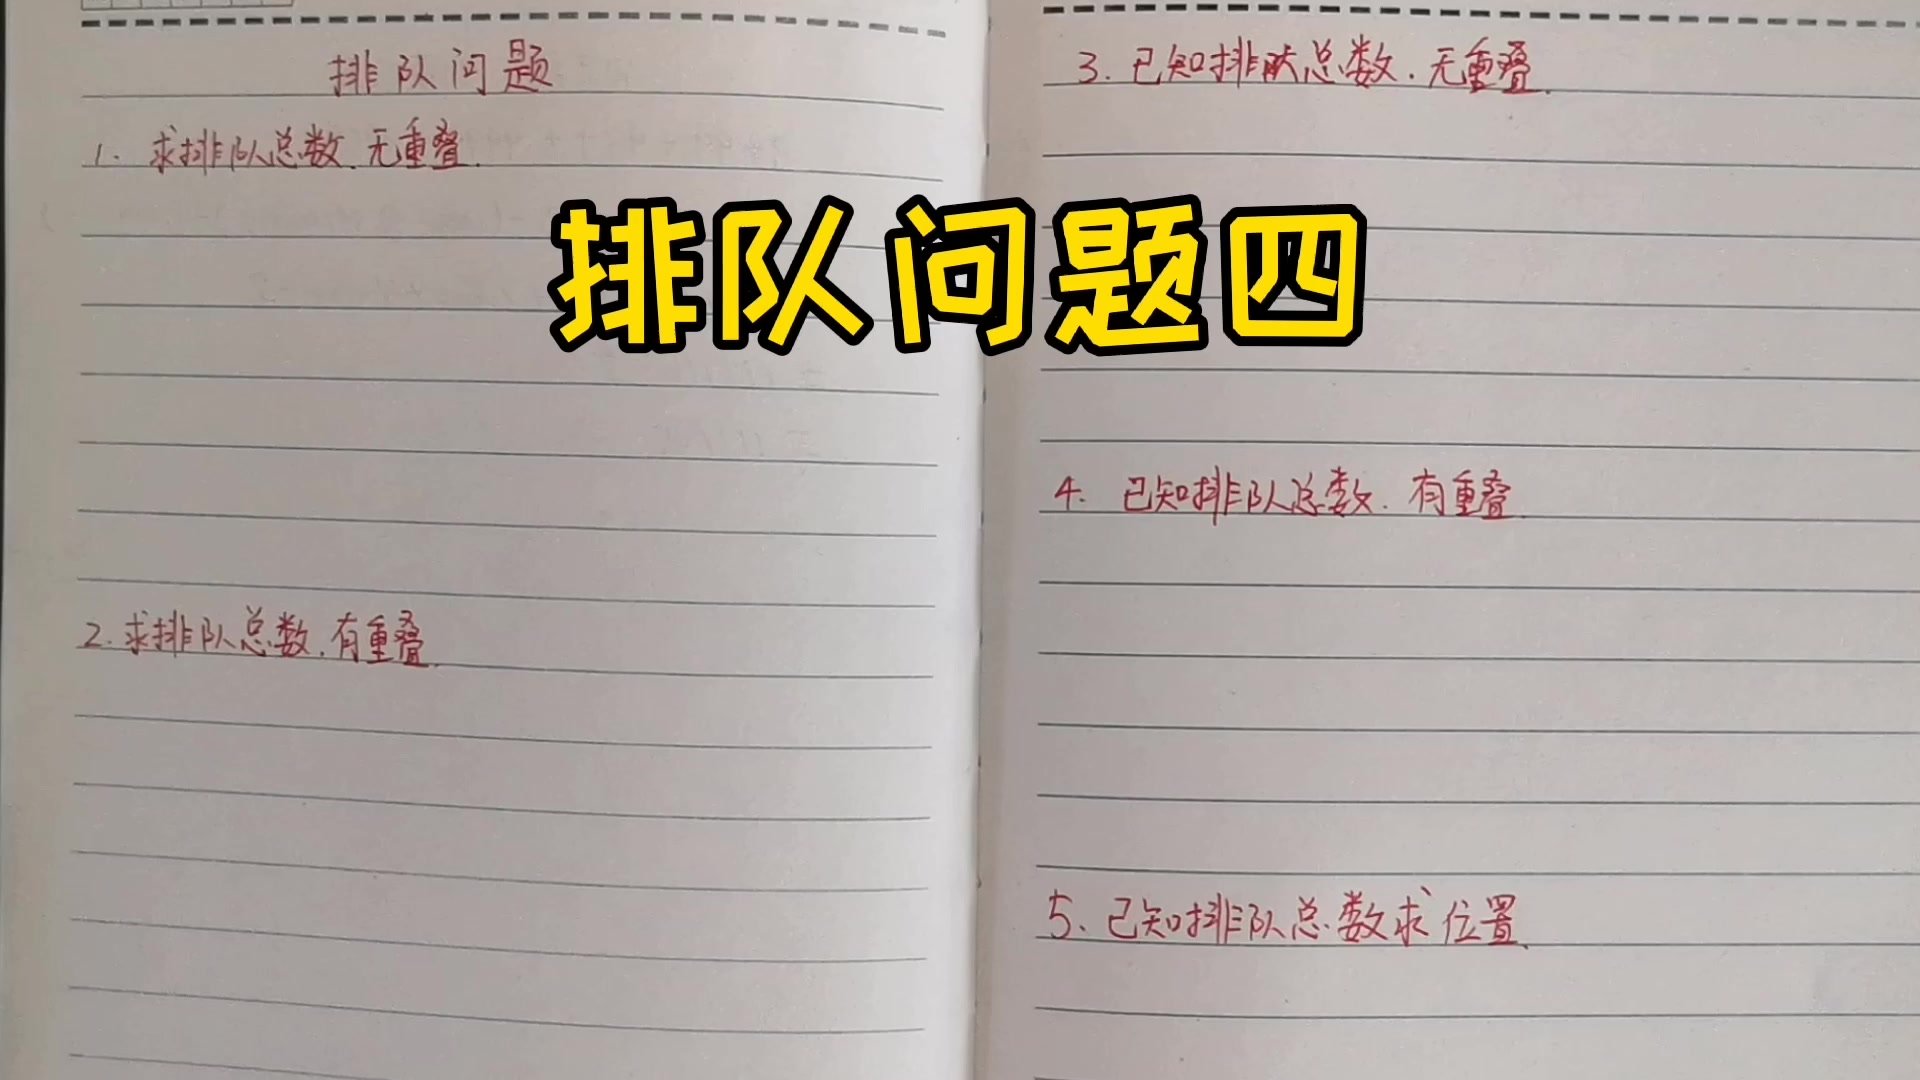 排队问题
1. 求排队总数.无重叠.
2.求排队总数.有重叠.
排队问题四
3. 已知排队总数.无重叠.
4. 已知排队总数.有重叠.
5、已知排队总数求位置.